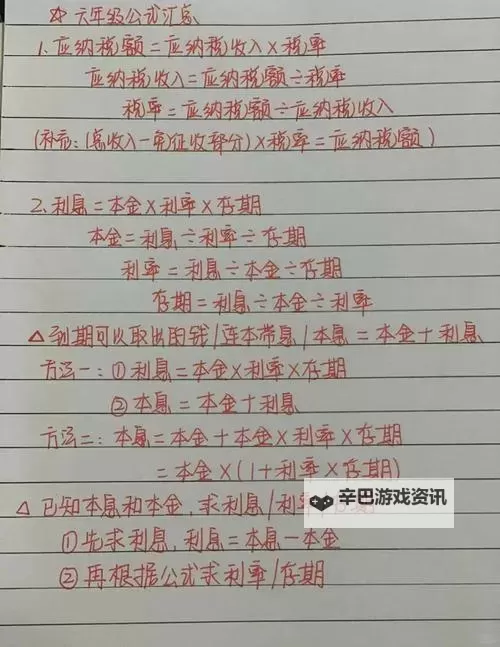 ☆ 六年级公式汇总
1. 应纳税额=应纳税收入×税率
应纳税收入=应纳税额÷税率
税率=应纳税额÷应纳税收入
(补充:(总收入-免征收部分)×税率=应纳税额)
2. 利息=本金×利率×存期
本金=利息÷利率÷存期
利率=利息÷本金÷存期
存期=利息÷本金÷利率
△ 到期可以取出的钱/连本带息/本息=本金+利息
方法一:①利息=本金×利率×存期
②本息=本金+利息
方法二:本息=本金+本金×利率×存期
=本金×(1+利率×存期)
△ 已知本息和本金,求利息/利率
辛巴游戏资讯
①先求利息,利息=本息-本金
②再根据公式求利率/存期